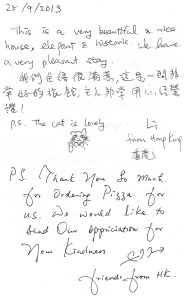 25/9/2013
This is a very beautiful & nice
house, elegant & historic. We have
a very pleasant stay.
我們住得很滿意,這是一間非
常好的旅館,主人非常用心經營
喔!
P.S. The cat is lovely
Li
from Hong Kong
香港
P.S. Thank You So Much
for Ordering Pizza for
us. We would like to
send Our Appriciation for
Your Kindness
friends from HK.